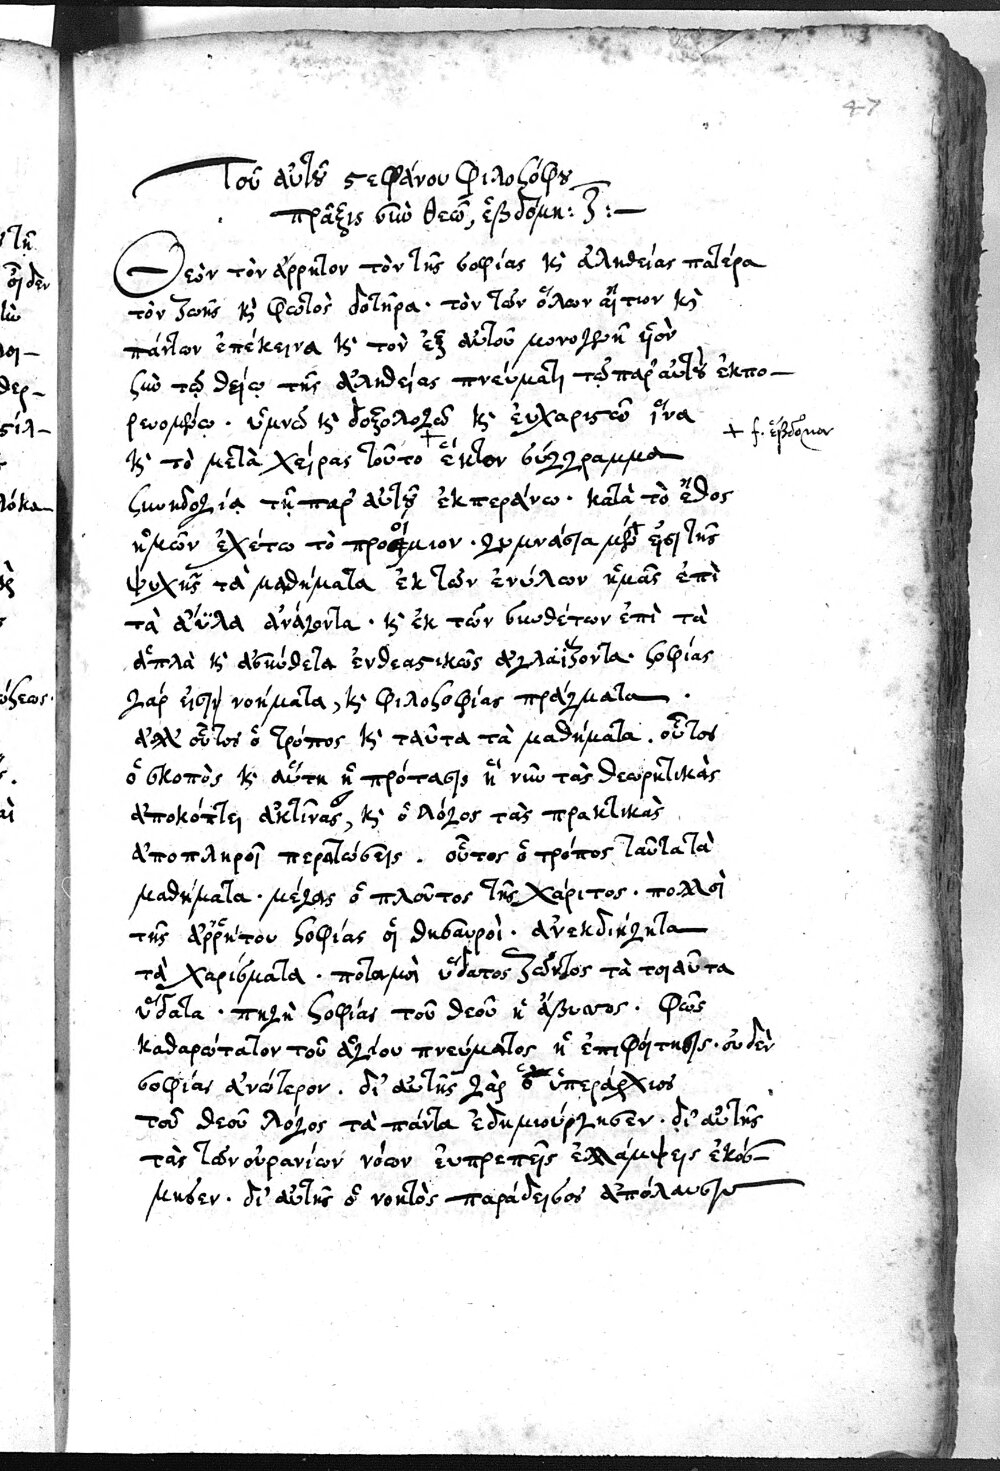 47
Τοῦ αὐτοῦ Στεφάνου Φιλοσόφου
πρᾶξις σὺν θεῷ, ἑβδόμη: ζ:—
Θεὸν τὸν ἄρρητον τὸν τῆς σοφίας κὶ ἀληθείας πατέρα
τὸν ζωῆς κὶ φωτὸς δοτῆρα · τὸν τῶν ὅλων αἴτιον κὶ
πάντων ἐπέκεινα κὶ τὸν ἐξ αὐτοῦ μονογενῆ υἱὸν
σὺν τῷ θείῳ τῆς ἀληθείας πνεύματι τῷ παρ' αὐτοῦ ἐκπο–
ρευομένῳ · ὑμνῶ κὶ δοξολογῶ κὶ εὐχαριστῶ ἵνα
κὶ τὸ μετὰ χεῖρας τοῦτο + ἕκτον σύγγραμμα
+ f. ἕβδομον
συνηδολίᾳ τῇ παρ' αὐτοῦ ἐκπεράνω · κατὰ τὸ ἔθος
ἡμῶν ἐχέτω τὸ προοίμιον · γυμνάσια μὲν εἰσὶ τῆς
ψυχῆς τὰ μαθήματα ἐκ τῶν ἐνύλων ἡμᾶς ἐπὶ
τὰ ἄϋλα ἀνάγοντα · κὶ ἐκ τῶν συνθέτων ἐπὶ τὰ
ἁπλὰ κὶ ἀσύνθετα ἐνθεαστικῶς ἀγλαΐζοντα · σοφίας
γάρ εἰσιν νοήματα, κὶ φιλοσοφίας πράγματα ·
ἀλλ' οὗτος ὁ τρόπος κὶ ταῦτα τὰ μαθήματα . οὗτος
ὁ σκοπὸς κὶ αὕτη ἡ πρότασις ἣ νῦν τὰς θεωρητικὰς
ἀποκόπτει ἀκτῖνας, κὶ ὁ λόγος τὰς πρακτικὰς
ἀποπληροῖ περατώσεις . οὗτος ὁ τρόπος ταῦτα τὰ
μαθήματα · μέγας ὁ πλοῦτος τῆς χάριτος · πολλοὶ
τῆς ἀρρήτου σοφίας οἱ θησαυροὶ · ἀνεκδιήγητα
τὰ χαρίσματα · ποταμοὶ ὕδατος ζῶντος τὰ τοιαῦτα
ὕδατα · πηγὴ σοφίας τοῦ θεοῦ ἡ ἄβυσσος · φῶς
καθαρώτατον τοῦ ἁγίου πνεύματος ἡ ἐπιφοίτησις · οὐδὲν
σοφίας ἀνώτερον . δι' αὐτῆς γὰρ ὁ ὑπεράρχιος
τοῦ θεοῦ λόγος τὰ πάντα ἐδημιούργησεν · δι' αὐτῆς
τὰς τῶν οὐρανίων νόων εὐπρεπεῖς ἐλλάμψεις ἐκόσ–
μησεν · δι' αὐτῆς ὁ νοητὸς παράδεισος ἀπόλαυσιν